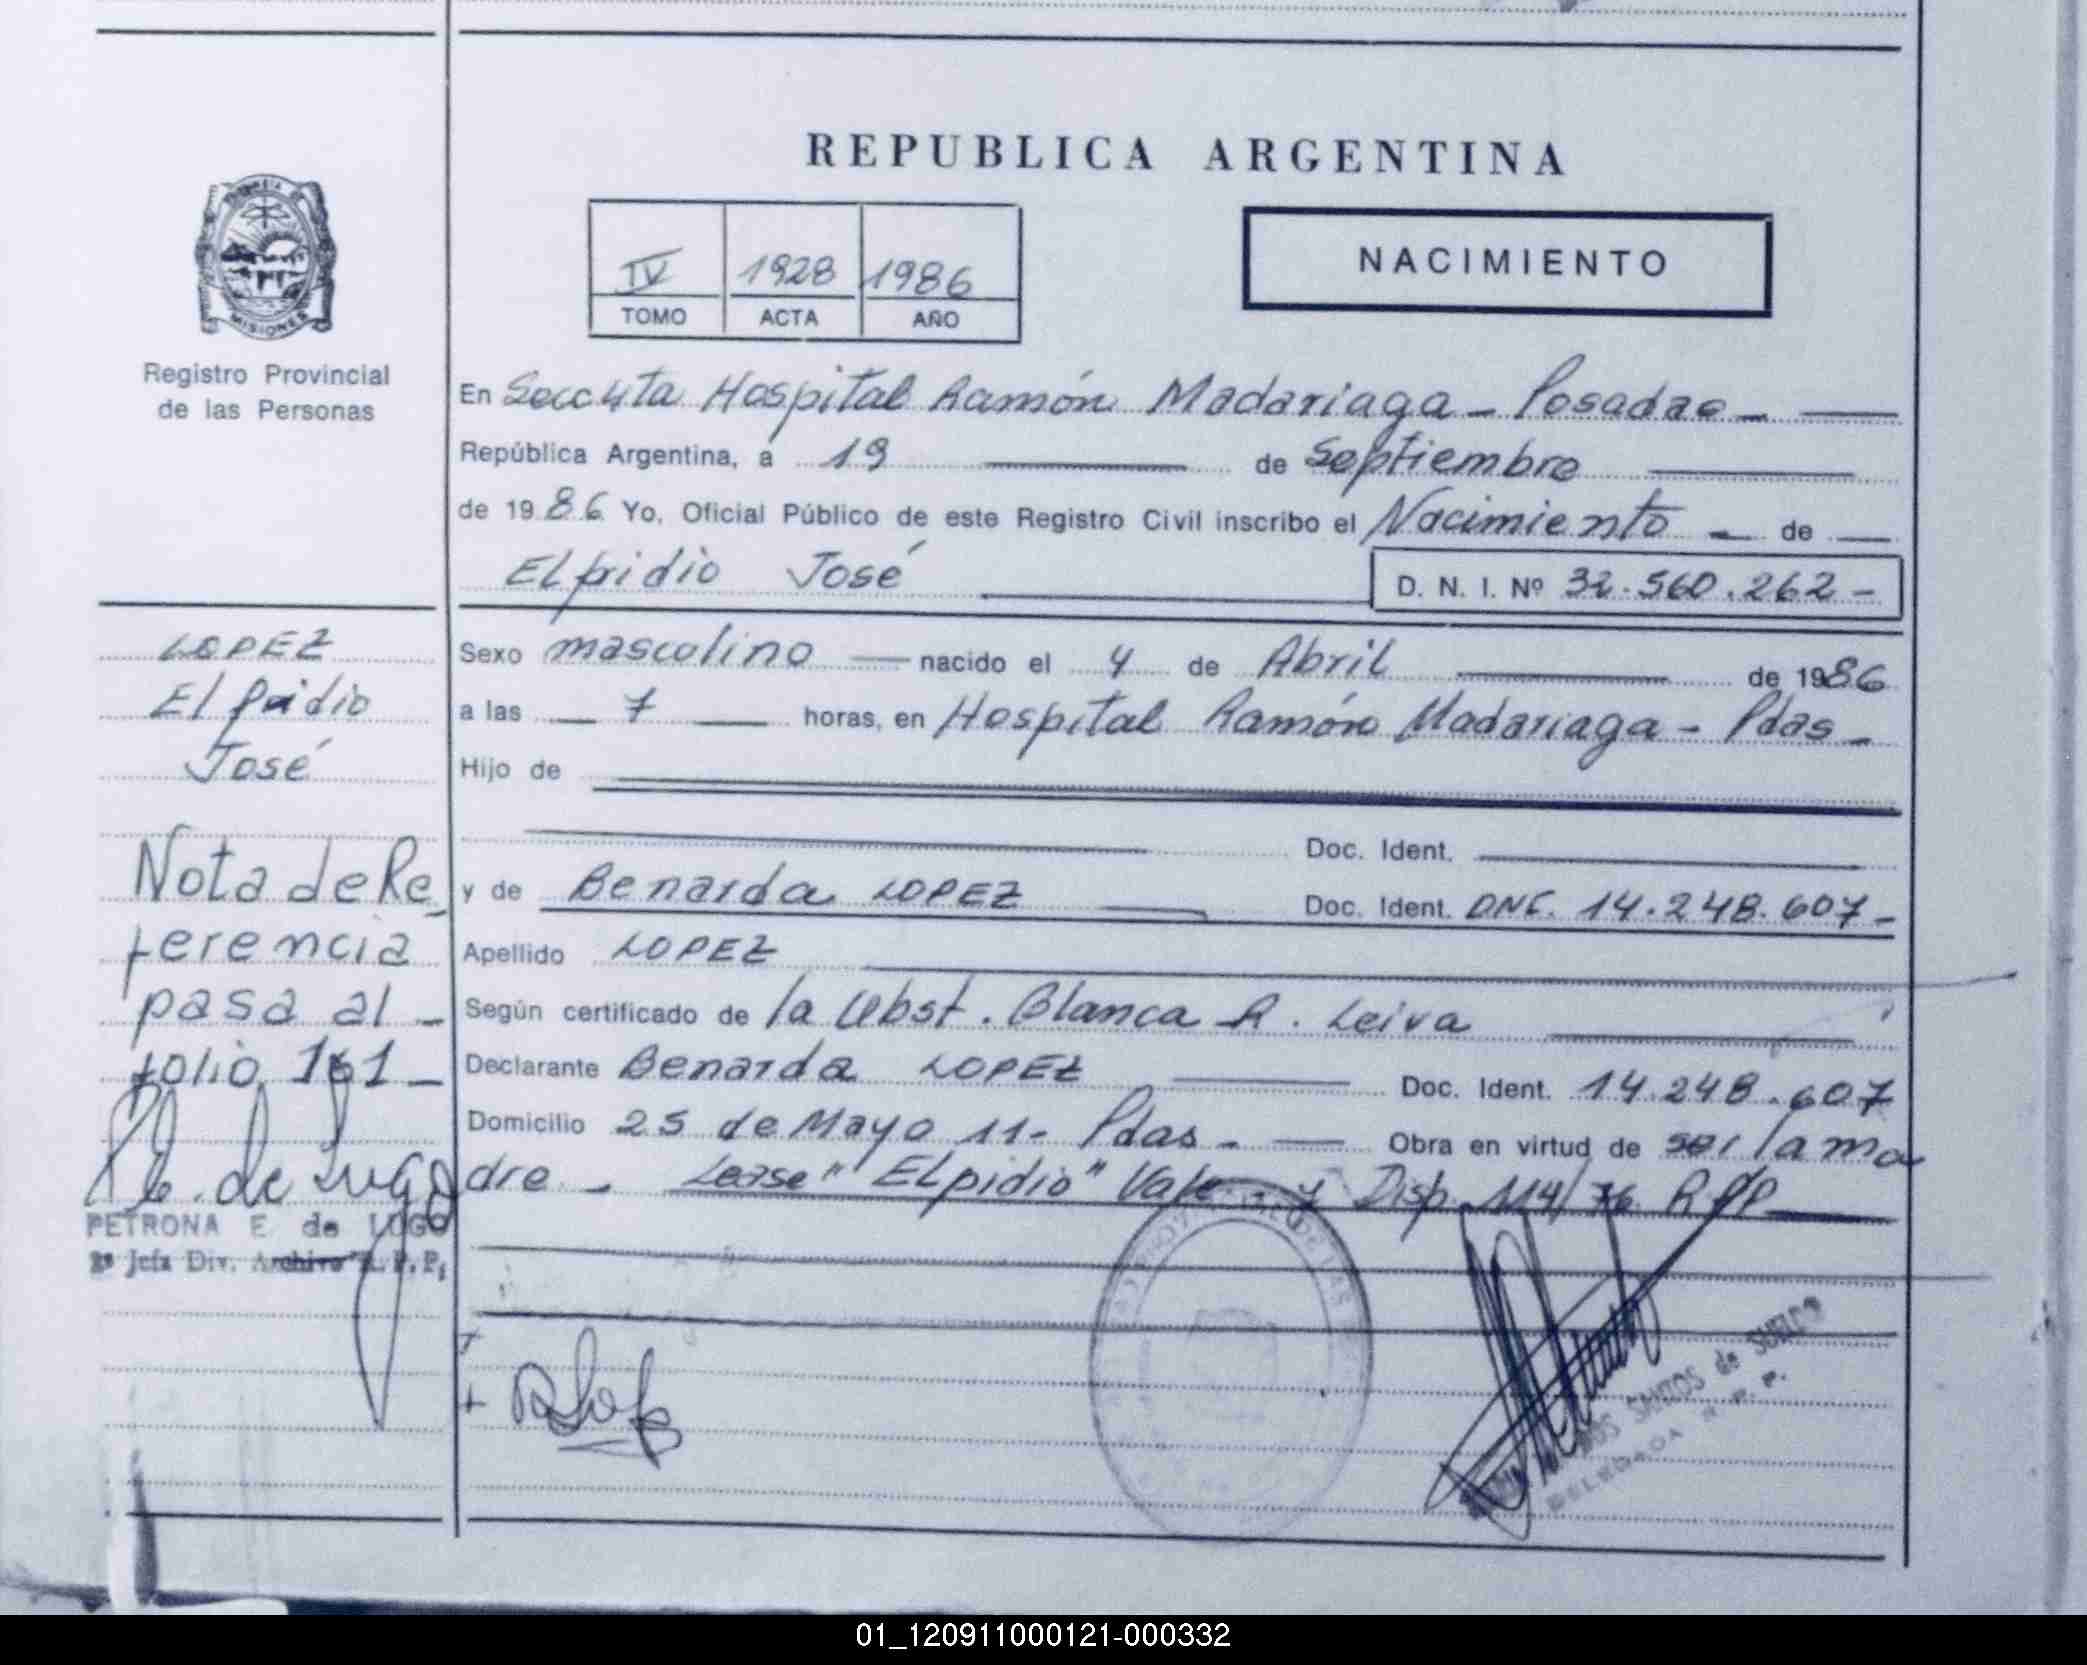 REPUBLICA ARGENTINA
NACIMIENTO
IV 1928 1986
TOMO ACTA AÑO
MISIONES
Registro Provincial
de las Personas
En Secc 4ta Hospital Ramón Madariaga - Posadas -
República Argentina, a 19 de Septiembre
de 1986 Yo, Oficial Público de este Registro Civil inscribo el Nacimiento - de
Elpidio José D. N. I. Nº 32.560.262-
LOPEZ
Elpidio
José
Sexo masculino nacido el 4 de Abril de 1986
a las 7 horas, en Hospital Ramón Madariaga - Pdas -
Hijo de
Doc. Ident.
y de Benarda LOPEZ Doc. Ident. DNI. 14.248.607-
Apellido LOPEZ
Según certificado de la Obst. Blanca R. Leiva
Declarante Benarda LOPEZ Doc. Ident. 14.248.607
Domicilio 25 de Mayo 11- Pdas - Obra en virtud de ser la ma
dre - Lease "Elpidio" Vale - y Disp. 114/76 RPP
Nota de Re
ferencia
pasa al -
folio 161 -
PETRONA E de LUGO
2ª Jefa Div. Archivo R. P. P.
SANTOS de SUELDO
DELEGADA R. P. P.
01_120911000121-000332